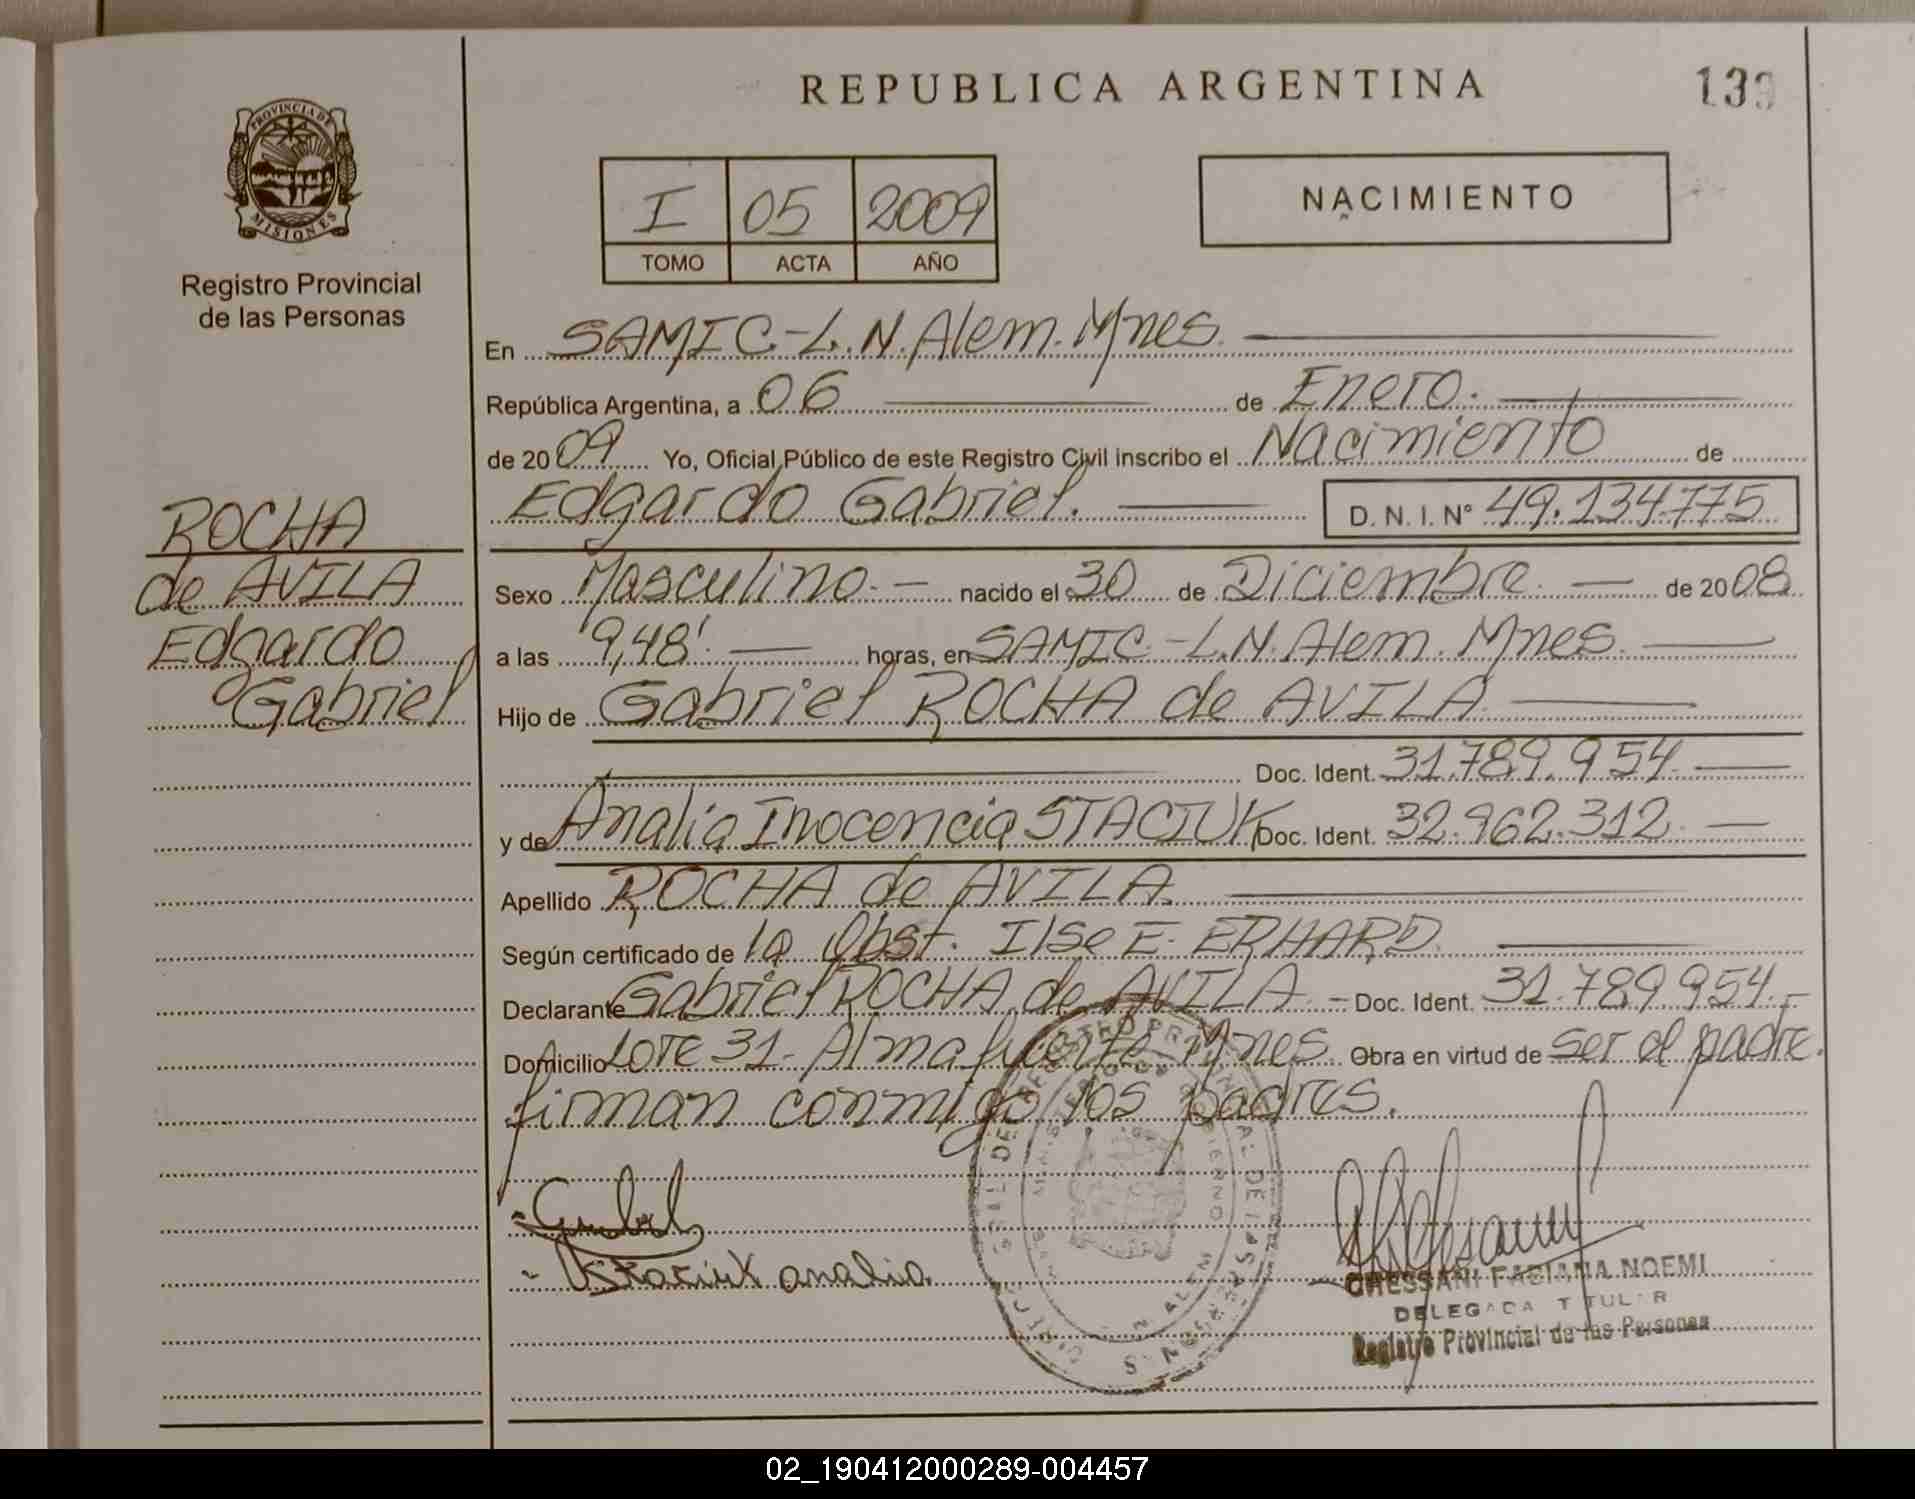 REPUBLICA ARGENTINA
139
PROVINCIA DE
MISIONES
Registro Provincial
de las Personas
I 05 2009
TOMO ACTA AÑO
NACIMIENTO
En SAMIC-L.N.Alem.Mnes.
República Argentina, a 06 de Enero.
de 2009 Yo, Oficial Público de este Registro Civil inscribo el Nacimiento de
Edgardo Gabriel. D.N.I.Nº 49.134.775
ROCHA
de AVILA
Edgardo
Gabriel
Sexo Masculino.- nacido el 30 de Diciembre. de 2008
a las 9,48'. horas, en SAMIC-L.N.Alem.Mnes.
Hijo de Gabriel ROCHA de AVILA
Doc. Ident. 31.789.954.
y de Analia Inocencia STACIUK Doc. Ident. 32.962.312.
Apellido ROCHA de AVILA.
Según certificado de la Obst. Ilse E. ERHARD.
Declarante Gabriel ROCHA de AVILA.- Doc. Ident. 31.789.954.-
Domicilio Lote 31- Almafuerte Mnes. Obra en virtud de ser el padre.
firman conmigo los padres.
Staciuk analia
GHESSANI FABIANA NOEMI
DELEGADA TITULAR
Registro Provincial de las Personas
02_190412000289-004457